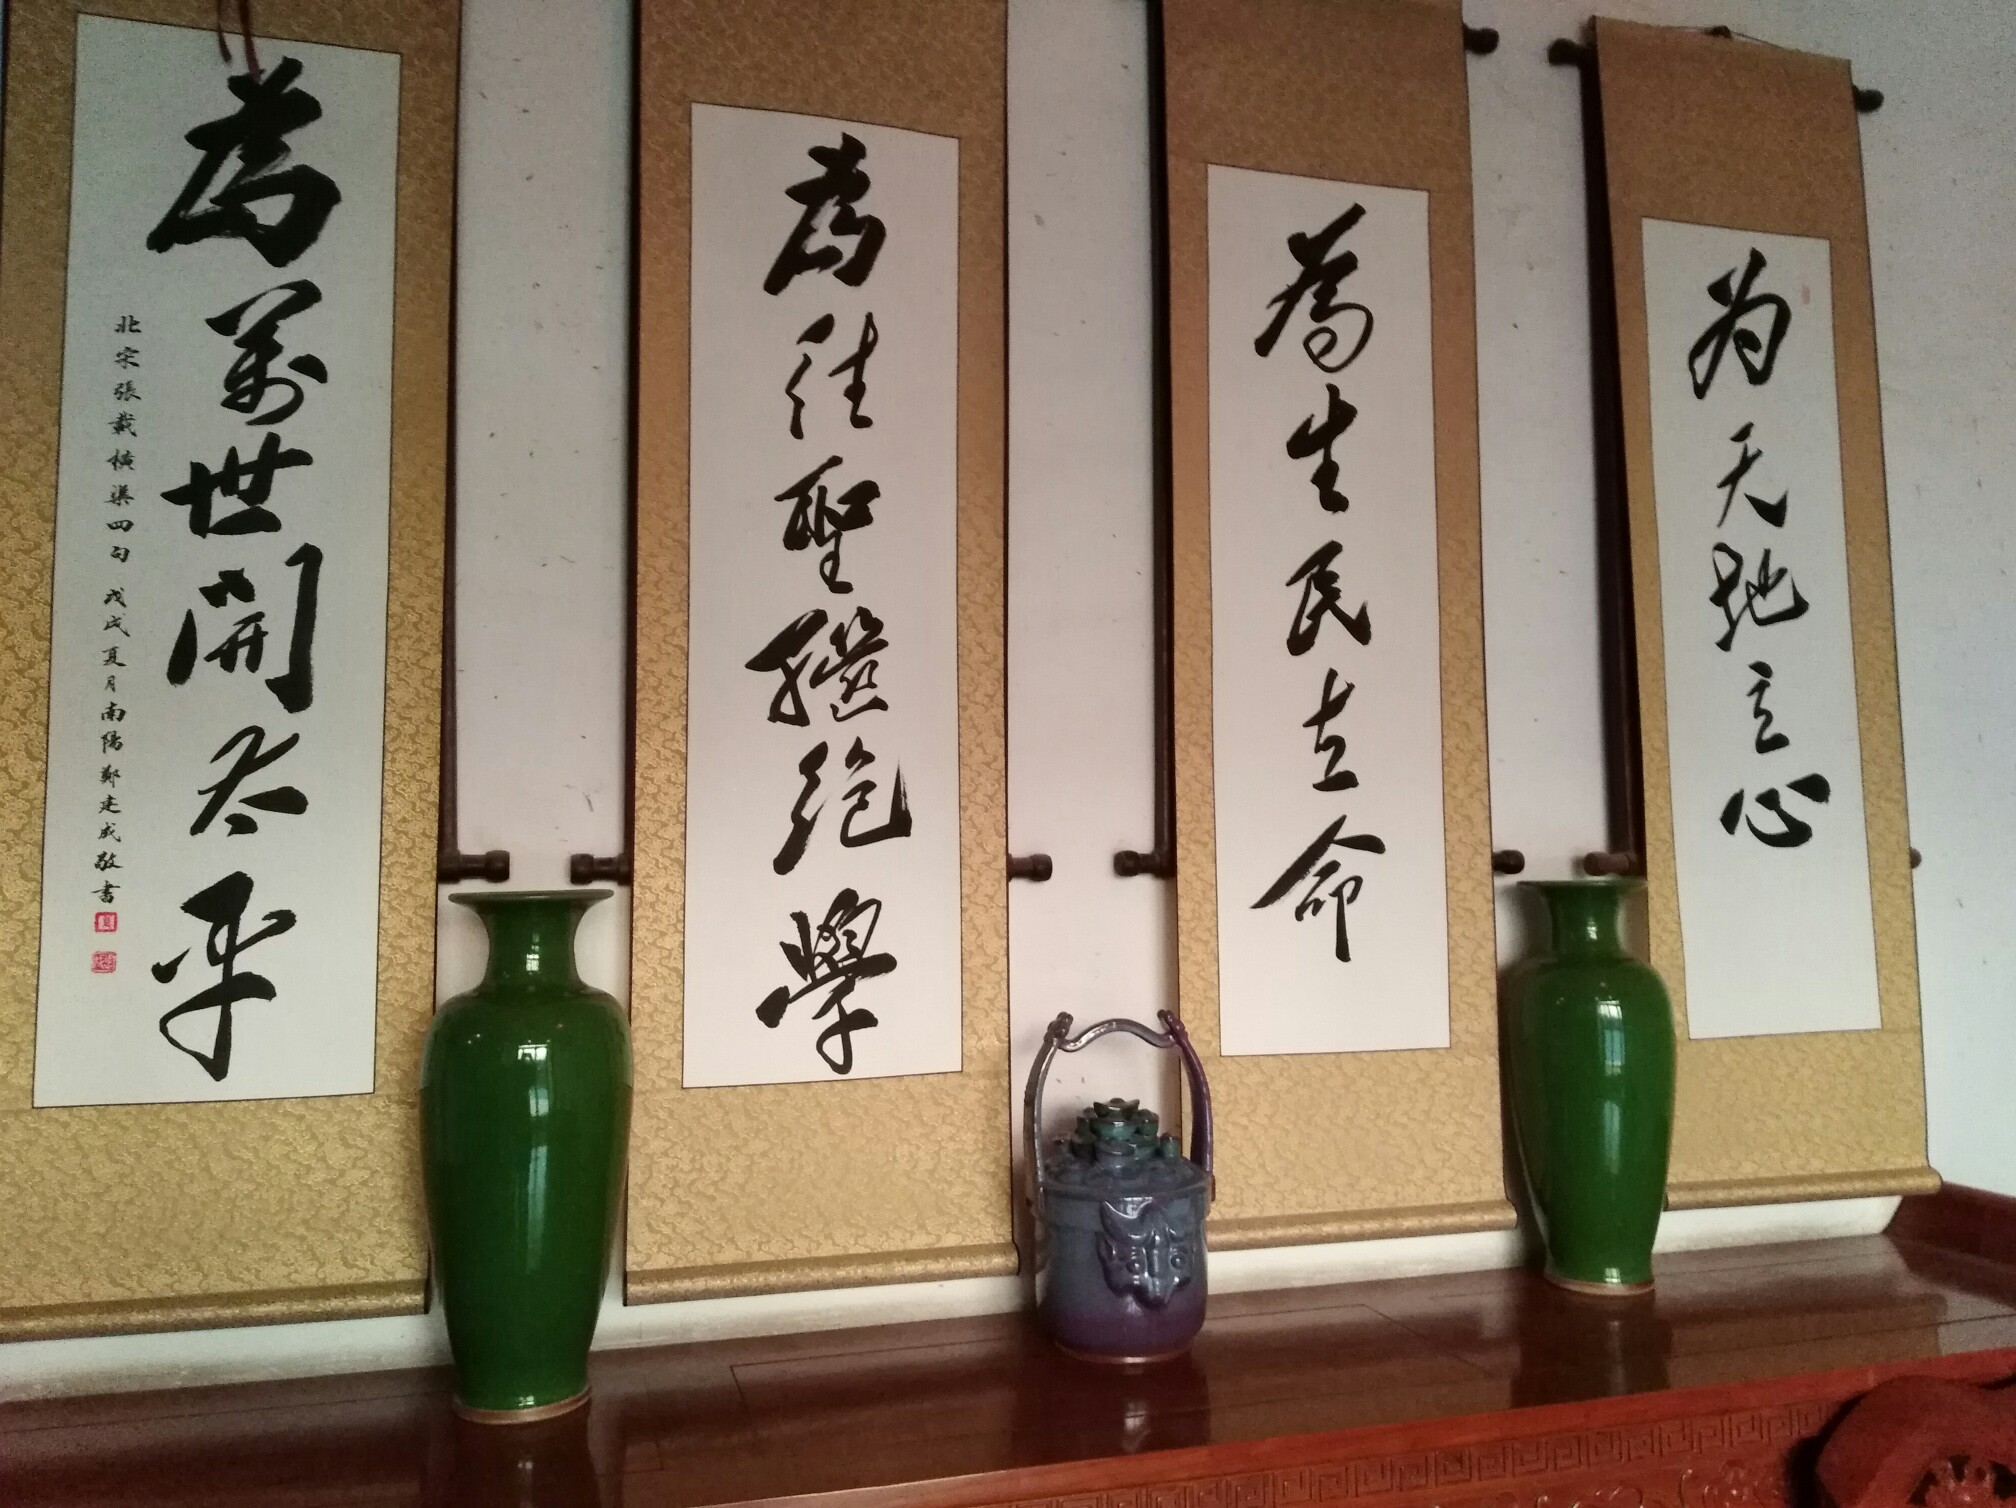 为天地立心
為生民立命
為往聖繼絕學
為萬世開太平
北宋張載橫渠四句 戊戌夏月南陽鄭建成敬書